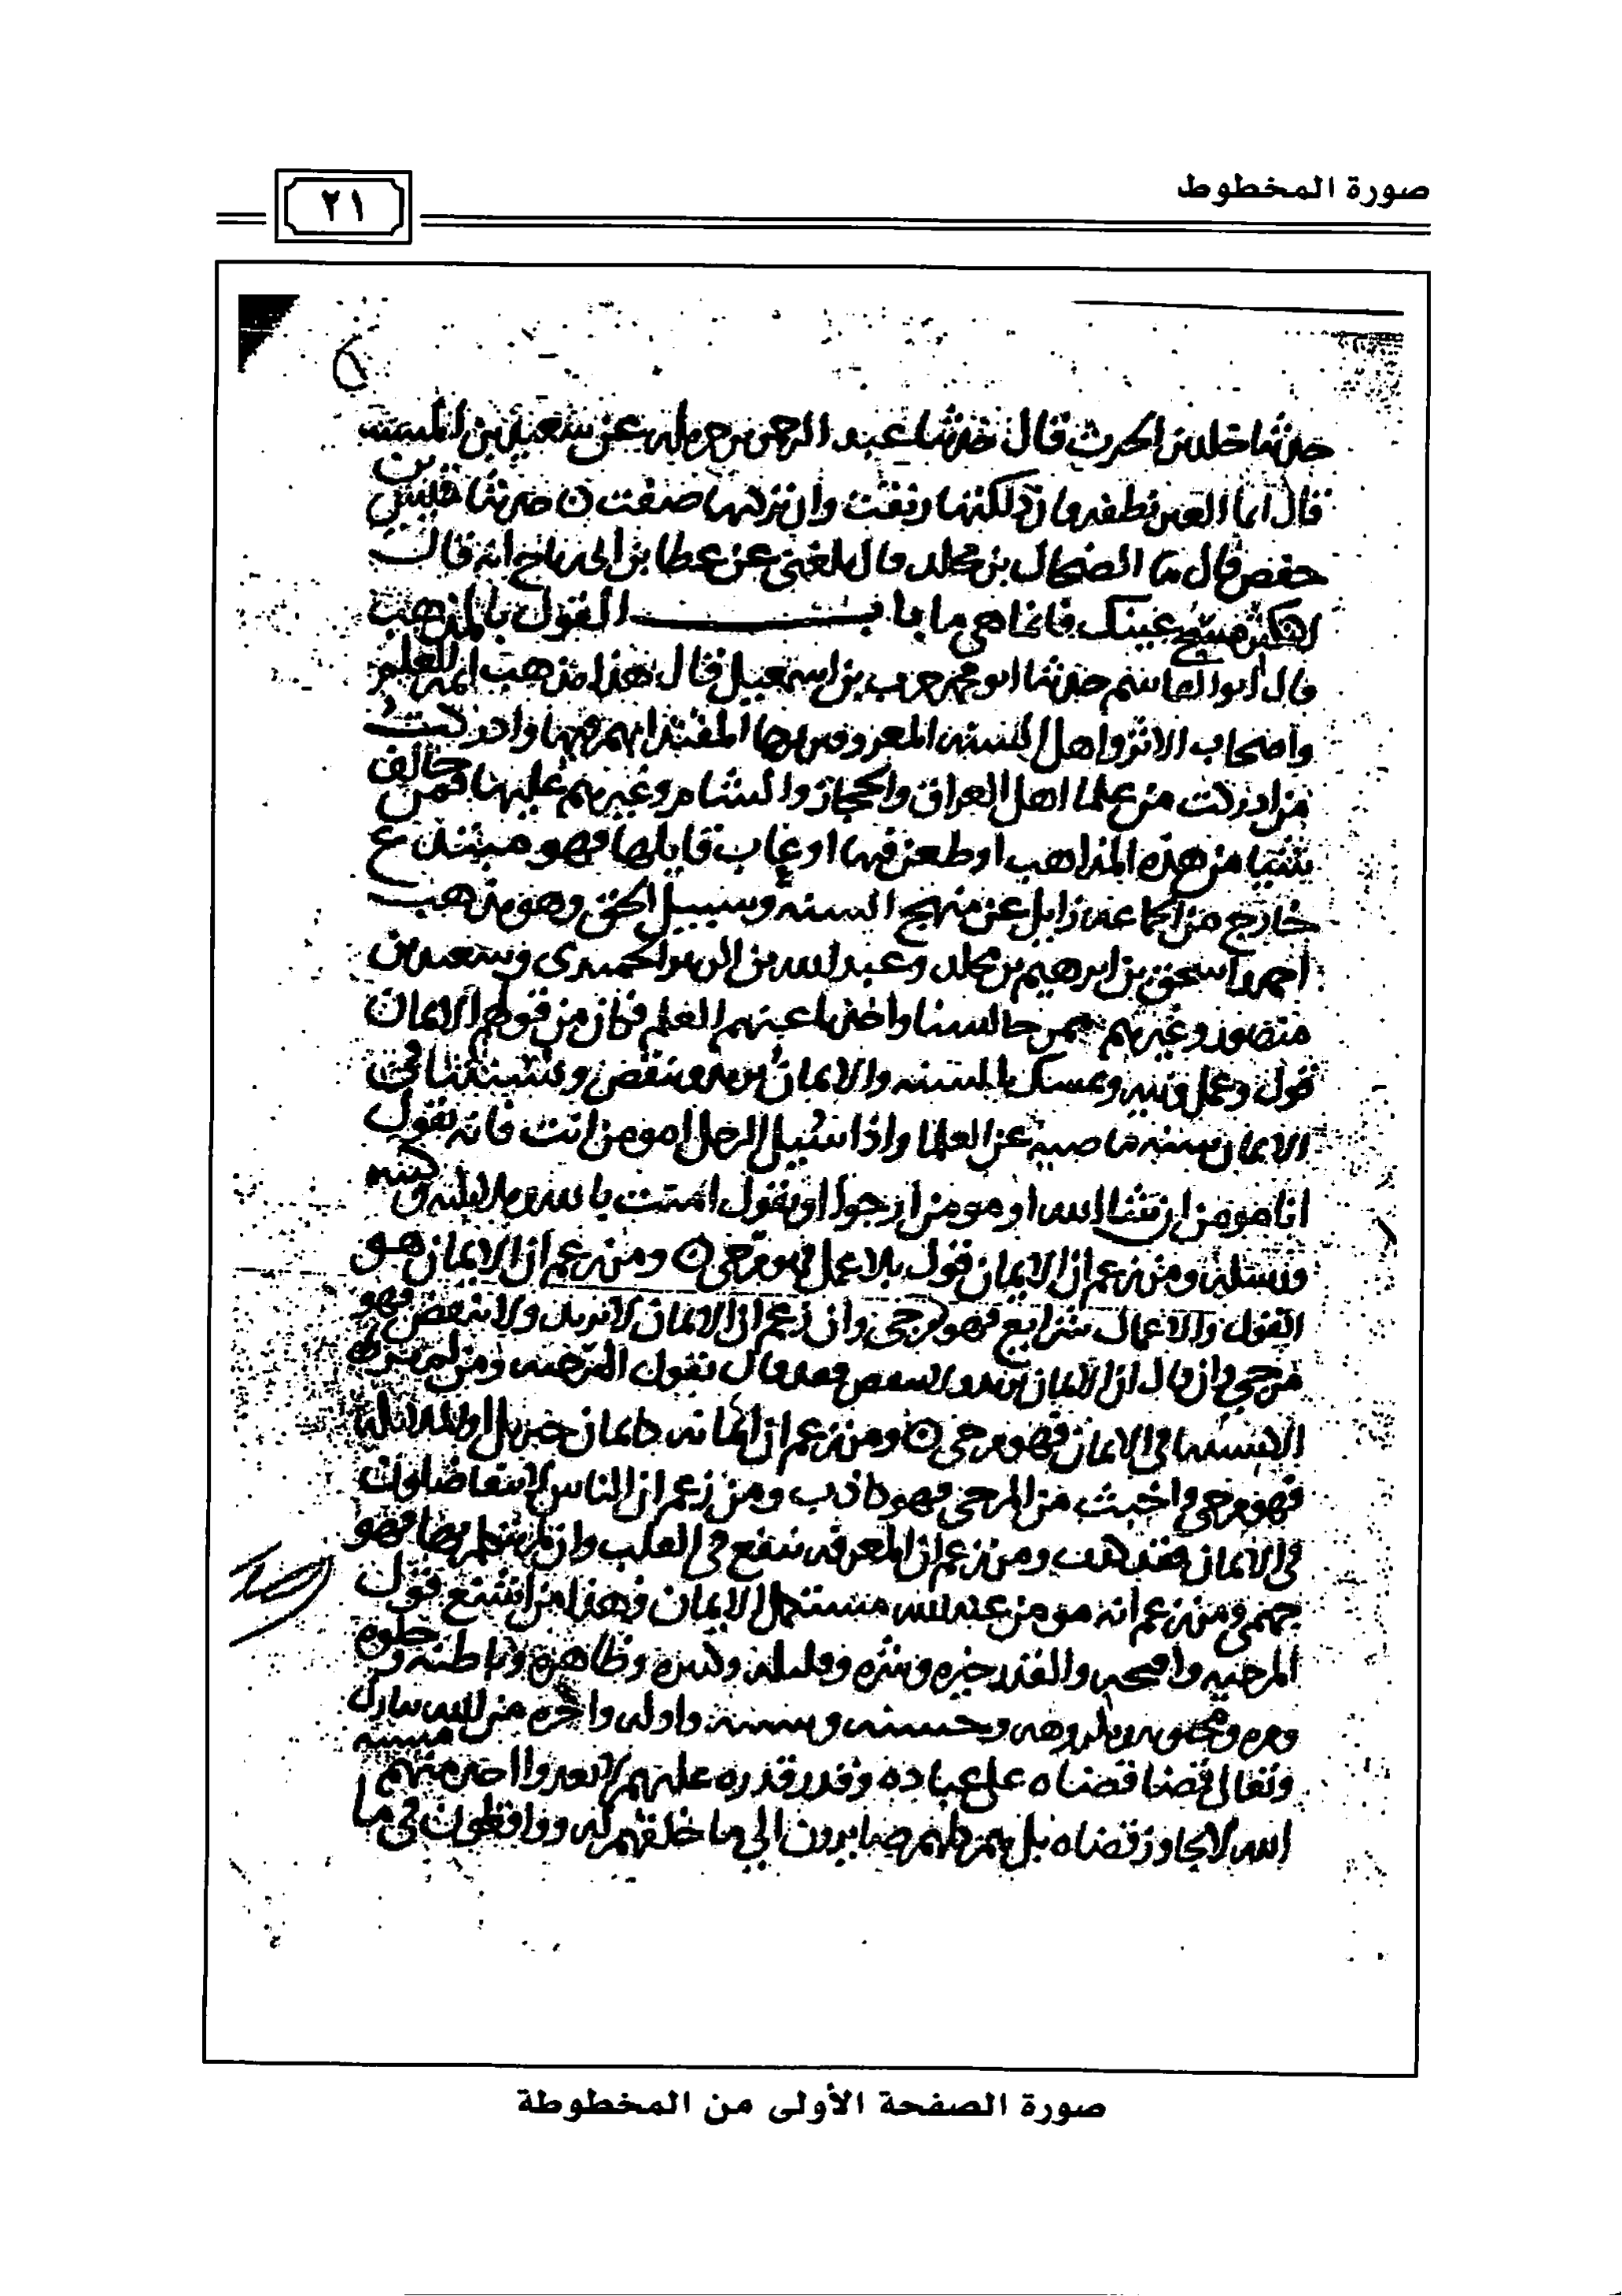 صورة المخطوط
٢١
حدثنا خلد بن الحرث قال حدثنا عبد الرحمن بن حرمله عن سعيد بن المسيب
قال انما العين نطفه فان دلكتها رنقت وان تركتها صفت حدثنا قيس بن
حفص قال ثنا الضحاك بن مخلد قال بلغني عن عطا بن ابي رباح انه قال
مسح عينيك فانما هي ما باب القول بالمذهب
قال ابو القاسم حدثنا ابو محمد حرب بن اسمعيل قال هذا مذهب ايمه العلم
واصحاب الاثر واهل السنه المعروفين بها المقتدا بهم فيها وادركت
من ادركت من علما اهل العراق والحجاز والشام وغيرهم عليها فمن خالف
شيا من هذه المذاهب او طعن فيها او عاب قايلها فهو مبتدع
خارج من الجماعه زايل عن منهج السنه وسبيل الحق وهو مذهب
احمد واسحق بن ابرهيم بن مخلد وعبد الله بن الزبير الحميدي وسعيد بن
منصور وغيرهم ممن جالسنا واخذنا عنهم العلم فكان من قولهم الايمان
قول وعمل ونيه وتمسك بالسنه والايمان يزيد وينقص ويستثنا في
الايمان سنه ماضيه عن العلما واذا سيل الرجل امومن انت فانه يقول
انا مومن ان شا الله او مومن ارجوا او يقول امنت بالله وملايكته وكتبه
ورسله ومن زعم ان الايمان قول بلا عمل فهو مرجى ومن زعم ان الايمان هو
القول والاعمال شرايع فهو مرجى وان زعم ان الايمان لا يزيد ولا ينقص فهو
مرجى وان قال ان الايمان يزيد ولا ينقص فقد قال بقول المرجيه ومن لم ير
الاستثنا في الايمان فهو مرجى ومن زعم ان ايمانه كايمان جبريل او الملايكه
فهو مرجى واخبث من المرجى فهو كاذب ومن زعم ان الناس لا يتفاضلون
في الايمان فقد كذب ومن زعم ان المعرفه تنفع في القلب وان لم يتكلم بها فهو
جهمى ومن زعم انه مومن عند الله مستكمل الايمان فهذا من اشنع قول
المرجيه واقبحه والقدر خيره وشره وقليله وكثيره وظاهره وباطنه وحلوه
ومره ومحبوبه ومكروهه وحسنه وسيه واوله واخره من الله تبارك
وتعالى قضا قضاه على عباده وقدر قدره عليهم لا يعدوا احد منهم مشيه
الله لا يجاوز قضاه بل هم كلهم صايرون الى ما خلقهم له وواقعون في ما
صورة الصفحة الأولى من المخطوطة